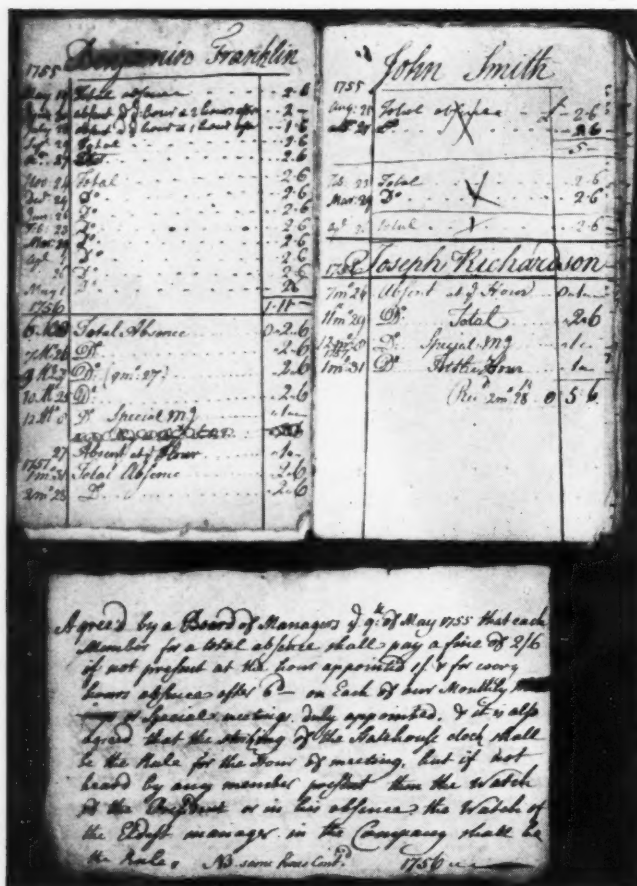 Benjamin Franklin
1755
May Total absence 2-6
absent at ye hour & 2 hours after 2-
July absent at ye hour & 1 hour 1-6
29 Total 2-6
27 2-6
Nov. 24 Total 2-6
Dec. 29 Do 2-6
Jan. 26 Do 2-6
Feb. 23 Do 2-6
Mar. 29 Do 2-6
Do 2-6
26 Do 2-6
May Do 2-6
1756 1-11-
Total Absence 0-2-6
7 Mo 26 Do 2-6
Do (9 mo. 27) 2-6
10 Mo 25 Do 2-6
12 Mo 8 Do Special Mg 1
27 Absent at ye Hour 1
1757
1 mo. 31 Total Absence 2-6
2 mo. 28 D. 2-6
John Smith
1755
Aug. 25 Total absence 2-6
2-6
5-
Feb. 23 Total 2-6
Mar. 29 Do 2-6
total 2-6
1756 Joseph Richardson
7 mo. 29 Absent at ye Hour 0-1-
11 mo. 29 Do Total 2-6
12 mo. 8 Do Special Mg 1
1757
1 mo. 31 Do At the Hour 1
(Recd 2 mo. 28 0 5-6
Agreed by a Board of Managers ye 9th of May 1755 that each
Member for a total absence shall pay a fine of 2/6
if not present at the hour appointed 1/ & for every
hours absence after 6 on Each of our Monthly
or Special meetings duly appointed. & it is also
agreed that the striking of the Statehouse clock shall
be the Rule for the Hour of meeting, but if not
heard by any member present then the Watch
of the President or in his absence the Watch of
the Eldest manager in the Company shall be
the Rule. NB same fines Contd 1756